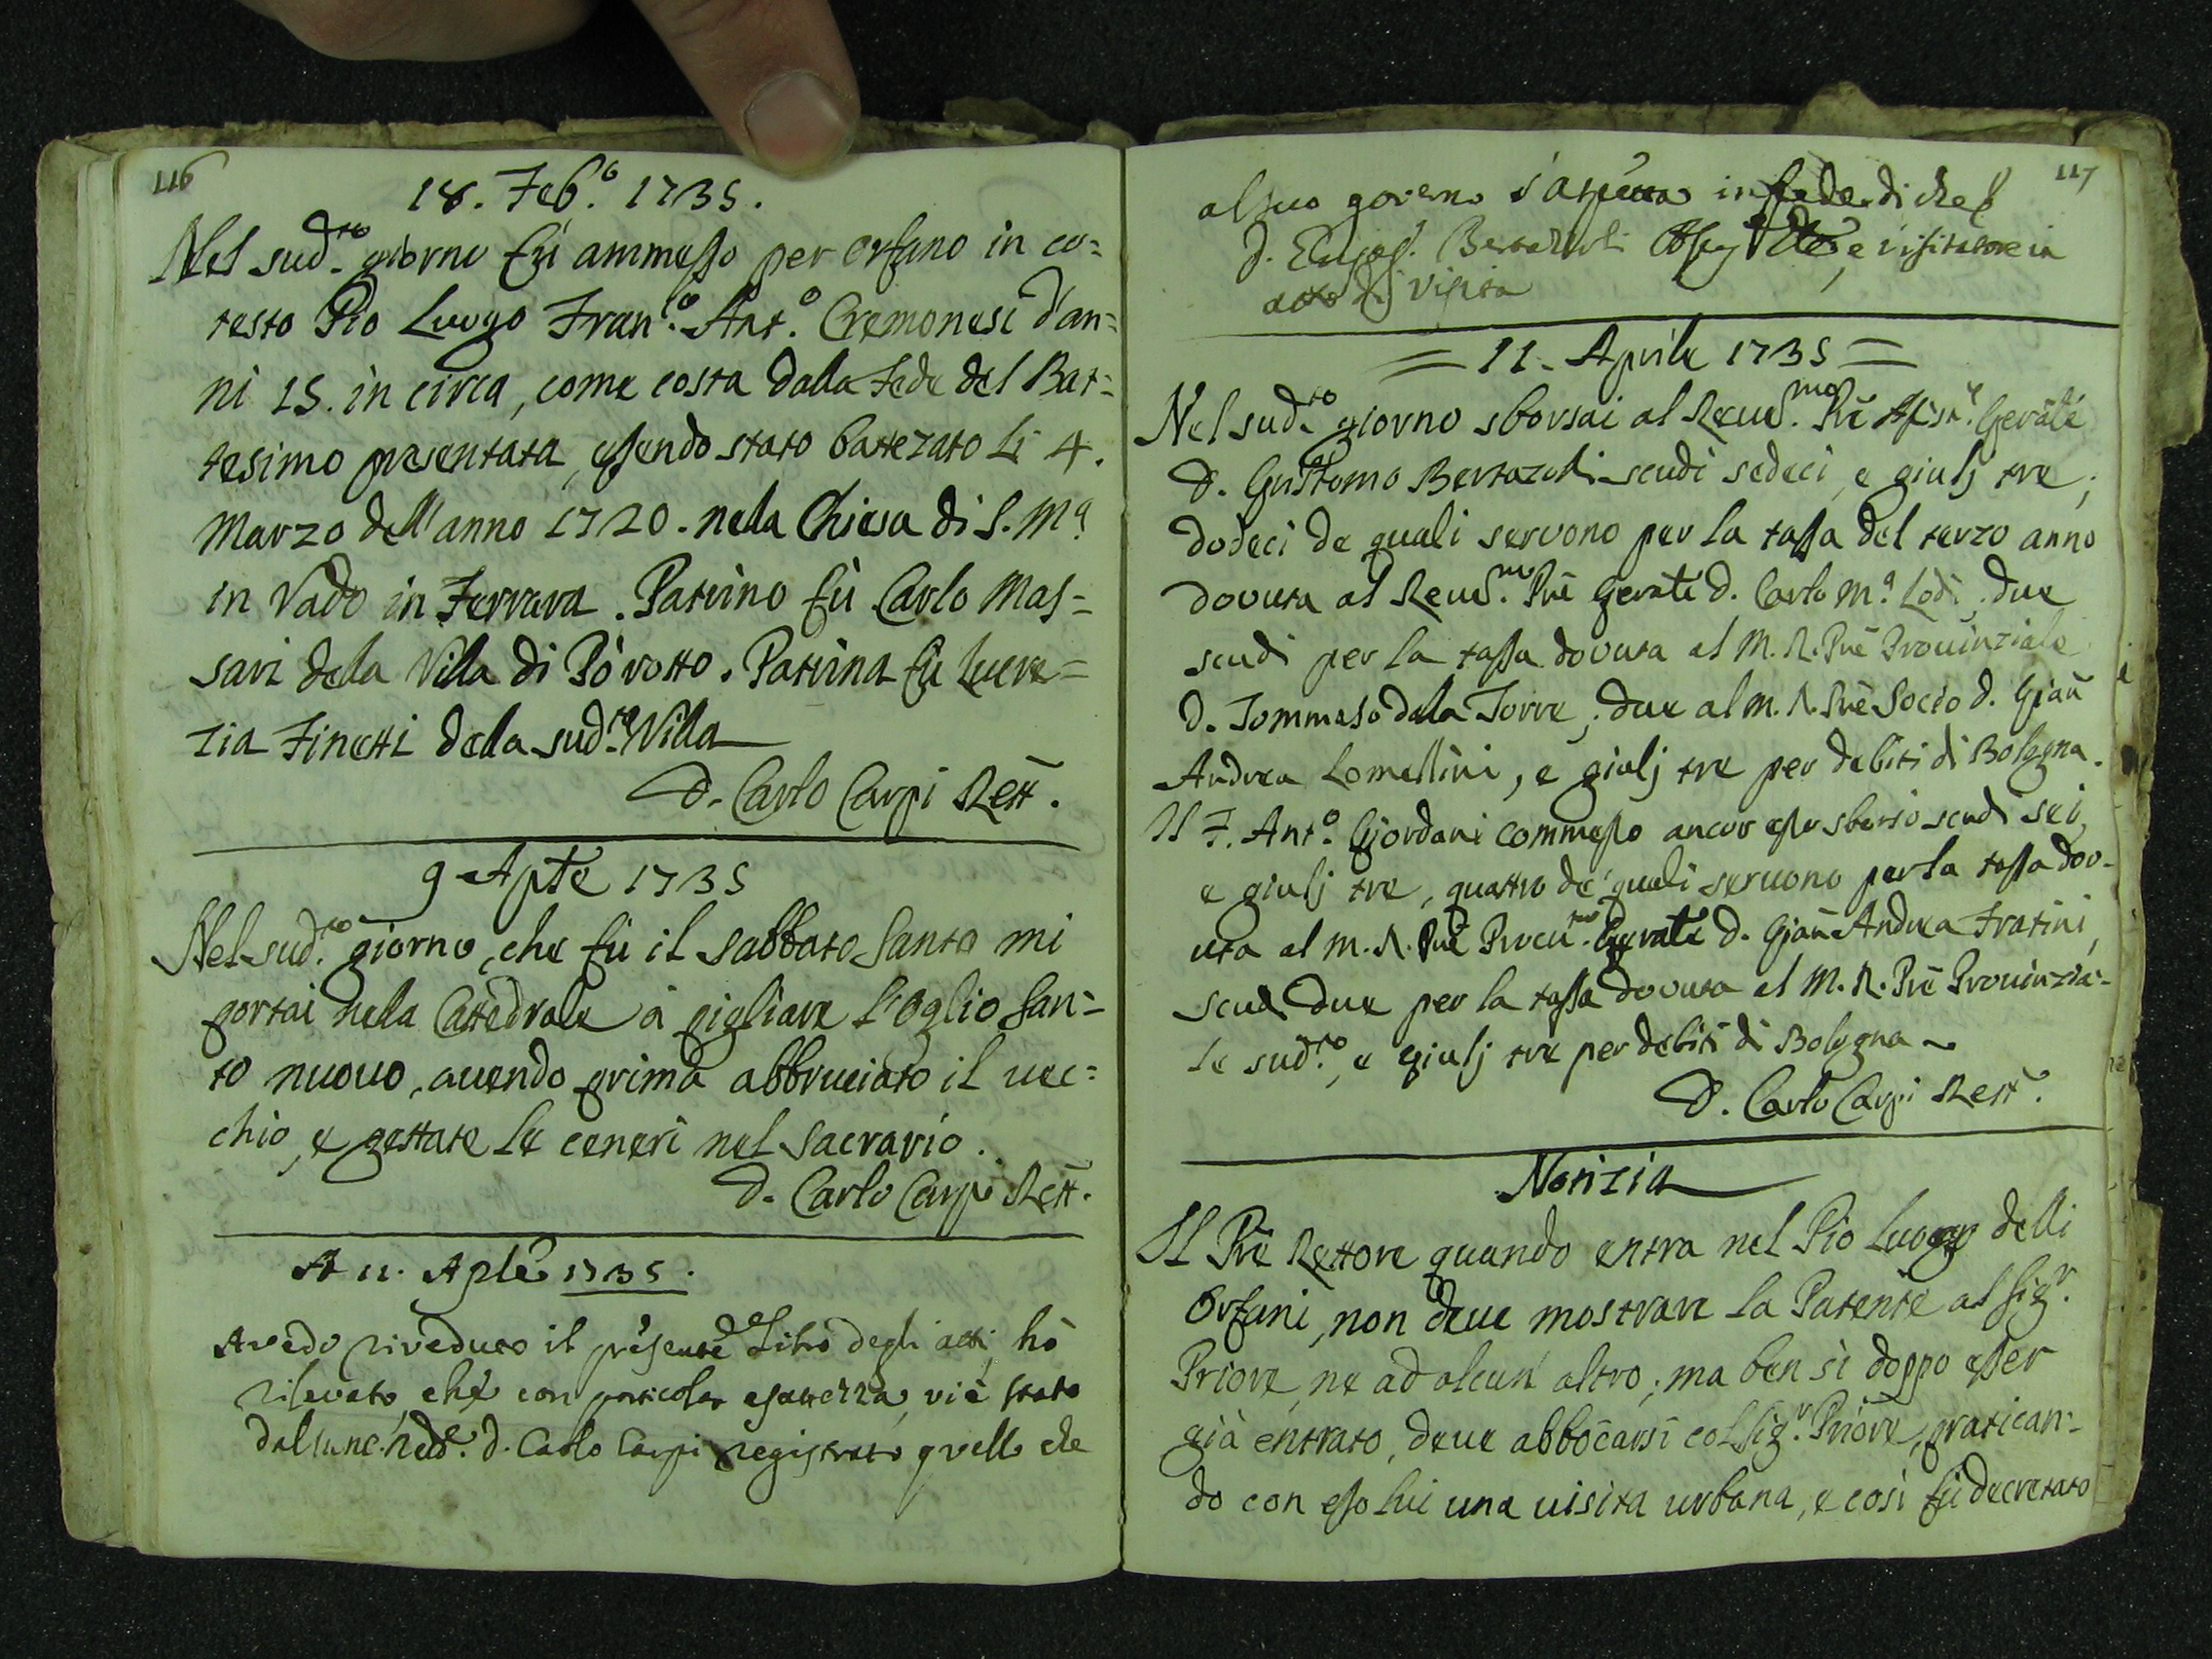 116
18. Feb.º 1735.
Nel sud.to giorno fù ammesso per orfano in co=
testo Pio Luogo Fran.co Ant.º Cremonesi d'an=
ni 15. in circa, come costa dalla Fede del Bat=
tesimo presentata, essendo stato battezato li 4.
Marzo dell'anno 1720. nella Chiesa di S. M.a
in Vado in Ferrara. Patrino fù Carlo Mas=
sari della Villa di Pò rotto. Patrina fù Lucre=
zia Finetti della sud.ta Villa
D. Carlo Carpi Rett.
9 Aple 1735
Nel sud.to giorno, che fù il sabbato Santo mi
portai nella Cattedrale à pigliare l'Oglio San=
to nuouo, auendo prima abbruciato il uec=
chio, e gettate le ceneri nel sacrario.
D. Carlo Carpi Rett.
A 11. Aple 1735.
Avedo riveduto il presente Libro degli atti, hò
rilevato, che con particolar esatezza, vi è stato
dal D. Carlo Carpi registrato quello che
117
al suo governo s'aspetta in fede di che
D. Bertazzoli e visitatore in
atto di visita
= 11. Aprile 1735 =
Nel sud.to giorno sborsai al Reue.mo Pre Assist.e Gerale
D. Gristomo Bertazoli scudi sedeci, e giulj tre;
dodeci de quali seruono per la tassa del terzo anno
douuta al Reue.mo Pre Gerale D. Carlo M.a Lodi, due
scudi per la tassa douuta al M. R. Pre Prouinziale
D. Tommaso dalla Torre, due al M. R. Pre Socio D. Giañ
Andrea Lomellini, e giulj tre per debiti di Bologna.
Il F. Ant.º Giordani commesso ancor esso sborsò scudi sei,
e giulj tre, quattro de' quali seruono per la tassa dou-
uta al M. R. Pre Procu.re Gerale D. Giañ Andrea Fratini,
scudi due per la tassa douuta al M. R. Pre Prouinzia-
le sud.to, e giulj tre per debiti di Bologna
D. Carlo Carpi Rett.
Notizia
Il Pre Rettore quando entra nel Pio Luogo delli
Orfani, non deue mostrare la Patente al Sig.r
Priore, ne ad alcun altro; ma ben sì doppo esser
già entrato, deue abboccarsi col Sig.r Priore, pratican=
do con esso lui una uisita urbana, e così fù decretato